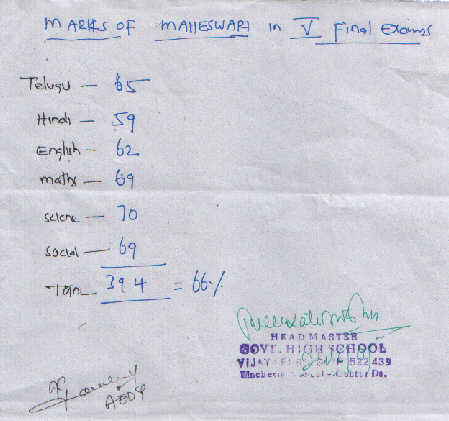 MARKS OF MAHESWARI in V Final Exams
Telugu - 65
Hindi - 59
English - 62
maths - 69
science - 70
social - 69
Total 394 = 66%
HEAD MASTER
GOVT. HIGH SCHOOL
522 439